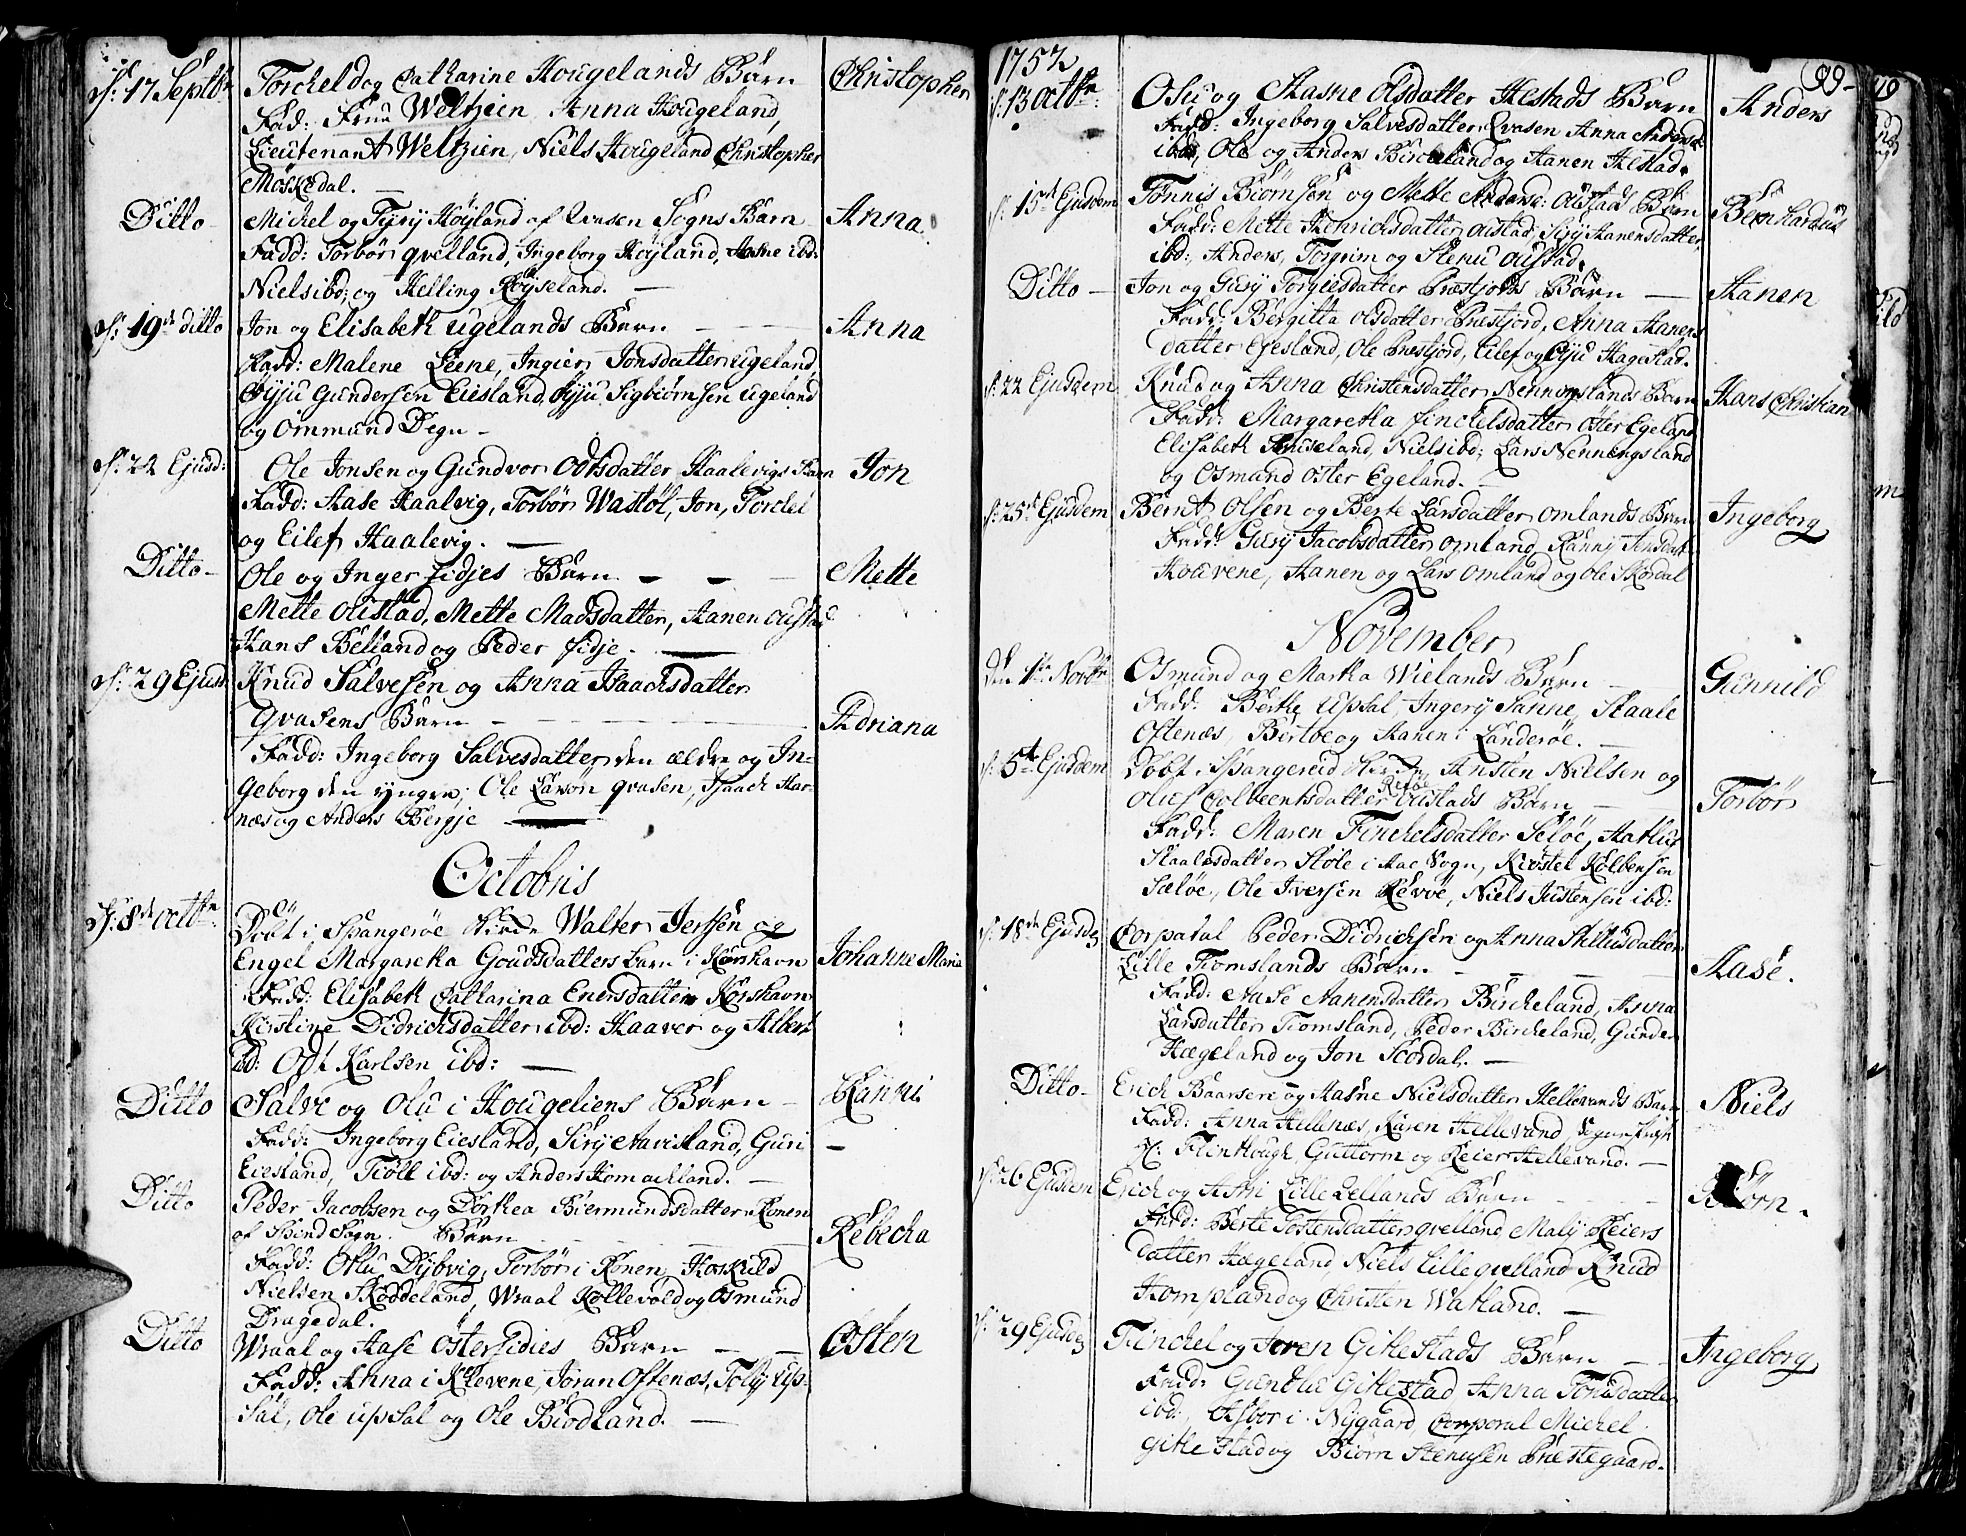 d. 17 Septbr Torchel og Catharine Hougelands Barn Christopher
Fad: Frue Weltzien, Anna Hougeland,
Lieutenant Weltzien, Niels Hougeland Christopher
Moskedal.
Ditto Michel og Siry Høyland af Qvasen Sogns Barn Anna
Fadd: Torbør qvelland, Ingeborg Høyland, Aasne ibd:
Niels ibd; og Helling Røyseland.
d. 19de ditto Jon og Elisabeth Ugelands Barn Anna
Fadd: Malene Leene, Ingier Jonsdatter Ugeland,
Øyju Gundersen Eiesland, Øyju Sigbiørnsen Ugeland
og Ommund Degn
d. 22 Ejusd: Ole Jonsen og Gundvor Odtsdatter Haalevigs Barn Jon
Fadd: Aase Haalvig, Torbør Wastøl, Jon, Torchel
og Eilef Haalevig.
Ditto Ole og Inger fidjes Barn Mette
Mette Oustad, Mette Madsdatter, Aanen Oustad
Hans Belland og Peder fidje.
d. 29 Ejusd Knud Salvesen og Anna Isaachsdatter
Qvasens Barn Adriana
Fadd: Ingeborg Salvesdatter den ældre og In-
geborg den yngre; Ole Larsøn qvasen, Isaach Aar-
næs og Anders Bergje
Octobris
d. 8de octbr: Døbt i Spangerøe Kirke Walter Jerssen og
Engel Margaretha Goudsdatters barn i Korshavn Johanne Maria
Fadd: Elisabeth Catharina Enersdatter Korshavn
Kirstine Didrichsdatter ibd: Haaver og Albert
ibd: Odt Karlsen ibd:
Ditto Salve og Olu i Hougeliens Barn Ranni
Fadd: Ingeborg Eiesland, Siry Aavisland, Guri
Eiesland, Tioll ibd: og Anders Homachland.
Ditto Peder Jacobsen og Dorthea Biermundsdatter Ronen
af Spind Sogn. Barn Rebecha
Fadd: Oslu Dybvig, Torbør i Ronen, Haskild
Nielsen Skoddeland, Wraal Kollevold og Osmund
Dragedal.
Ditto Wraal og Aase Østerfidies Barn Osten
Fadd: Anna i Klevene, Jøran Oftenæs, Toly Up-
sal, Ole Upsal og Ole Biodland.
1757 99
d. 13 octbr: Osu og Aasne Olsdatter Aestads Barn Anders
Fadd: Ingeborg Salvesdatter Qvasen Anna Andersd:
ibd, Ole og Anders Bircheland og Aanen Aestad.
d. 15de Ejusdem Tønnis Biørnsen og Mette Andersd: Oustads Barn Bernhardus
Fadd: Mette Henrichsdatter Oustad, Siry Aanensdatter
ibd:, Anders, Torgrim og Stenu Oustad.
Ditto Jon og Gury Torgiesdatter Præstjords Barn Aanen
Fadd: Bergitta Olsdatter Præstjord, Anna Aanens
datter Eiesland, Ole Præstjord, Eilef og Øyu Hagestad.
d. 22 Ejusdem Knud og Anna Christensdatter Nenningslands Barn Hans Christian
Fadd: Margaretha finchelsdatter Øster Egeland
Elisabeth Aruseland, Niels ibd; Lars Nenningsland
og Osmund Øster Egeland.
d. 25de Ejusdem Bernt Olsen og Berte Larsdatter Omlands Barn Ingeborg
Fadd: Gury Jacobsdatter Omland, Ranny Jensdatt:
Houvene, Aanen og Lars Omland og Ole Skordal
November
den 1te Novbr Osmund og Martha Wielands Barn Gunnild
Fadd: Berthe Upsal, Ingery Sanne, Staale
Oftenæs, Bertoe og Aanen i Landerøe.
d. 5te Ejusdem Døbt i Spangereid Kirke, Ansten Nielsen og
Oluf Colbeentsdatter Revøe Oustads Barn Torbør
Fadd: Maren Finchelsdatter Seløe, Aathus
Staalesdatter Støle i Aae Sogn, Kirstel Kolbensen
Sæløe, Ole Iversen Revøe, Niels Justensen ibd:
d. 18de Ejusdem Corporal Peder Didrichsen og Anna Sttusdatter
Lille Tiomslands Barn Aase.
Fadd: Aase Aanensdatter Bircheland, Anna
Larsdatter Tiomsland, Peder Bircheland, Gunder
Hægeland og Jon Scordal.
Ditto Erich Baarsen og Aasne Nielsdatter Hellevands Barn Niels
Fadd: Anna Hellenæs, Karen Hellevand,
H: Flinthough, Guttorm og Reier Hellevand.
d. 26 Ejusdem Erich og Astri Lille Lellands Barn Biørn.
Fadd: Berte Tostensdatter qvelland Maly Reiers
datter Hægeland, Niels Lille qvelland Knud
Kompland og Christen Watland.
d. 29 Ejusdem Finchel og Joren Gitlestads Barn Ingeborg
Fadd: Gunthu Gitlestad Anna Tonisdatter
ibd:, Asbør i Nygaard, Corporal Michel
Gitlestad og Biørn Stenusen Præstegaard.